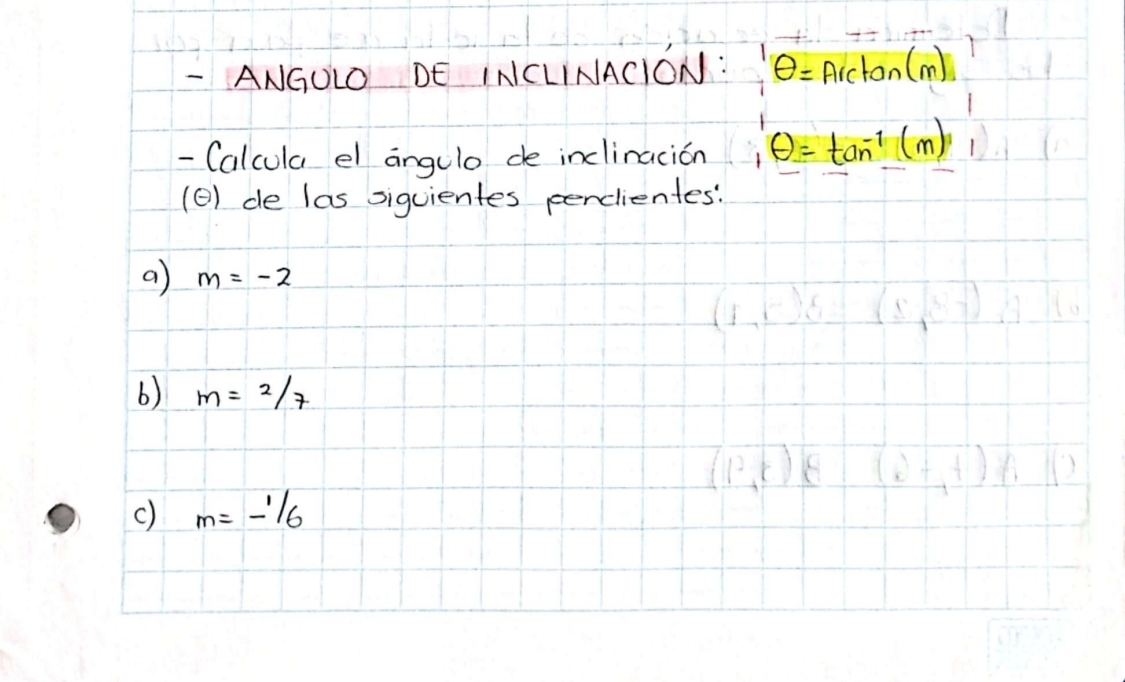 - ANGULO DE INCLINACIÓN: θ = Arctan(m)
- Calcula el ángulo de inclinación θ = tan⁻¹ (m)
(θ) de las siguientes pendientes:
a) m = -2
b) m = 2/7
c) m = -1/6